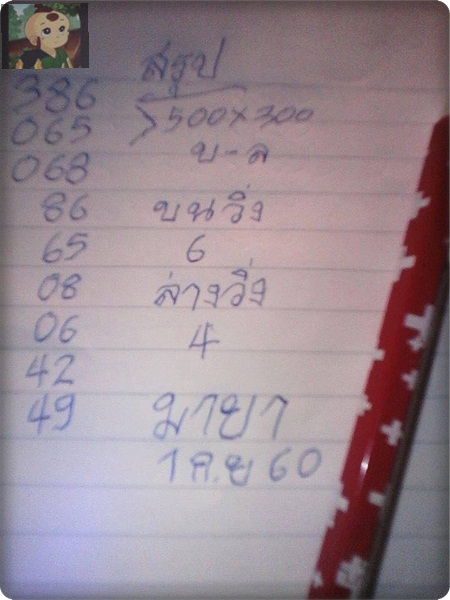 สรุป
386
500x300
065
บ-ล
068
86 บนวิ่ง
65 6
08 ล่างวิ่ง
06 4
42
49 มายา
1 ก.ย 60